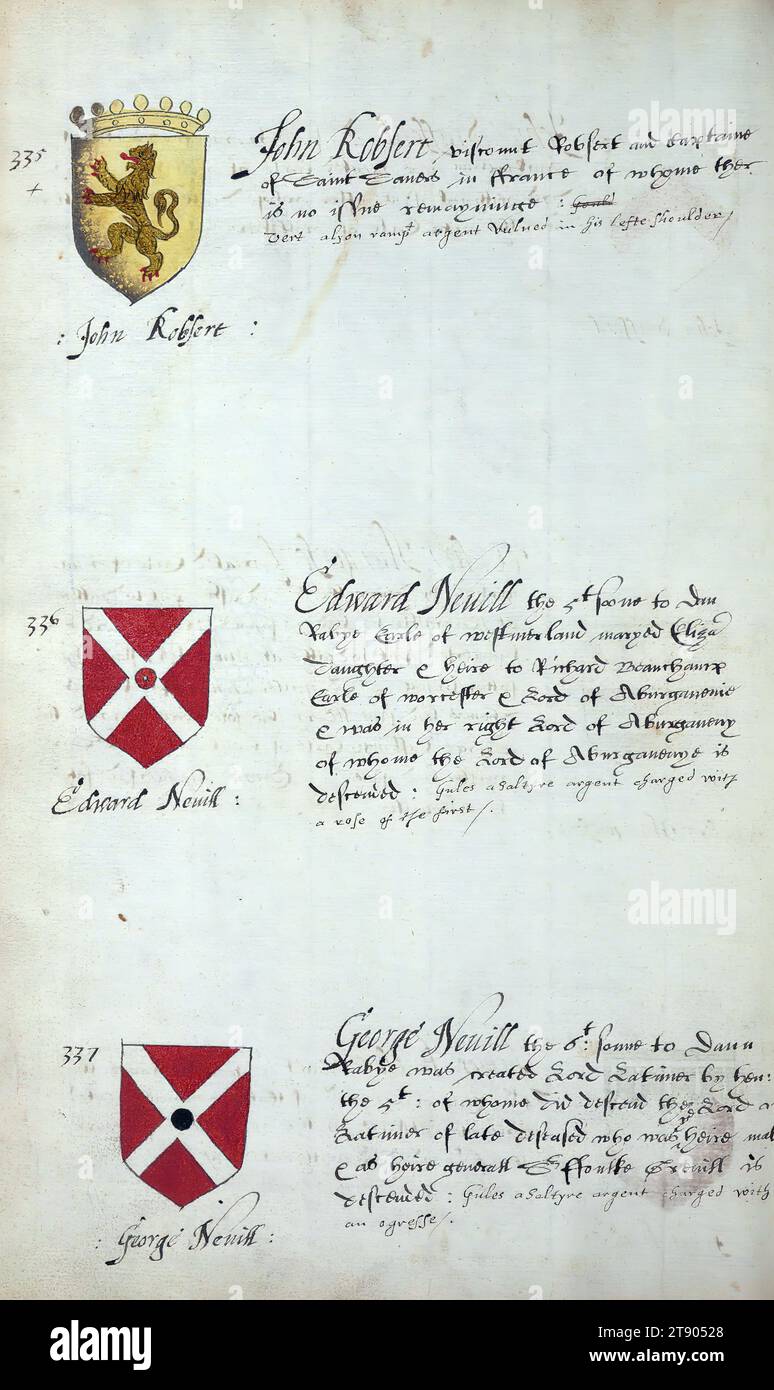 335
+
John Robsert, viscount Robsert and Captaine
of Saint Savers in ffrance of whome ther
is no issue remayninge :
Vert a lyon ramp argent Vulned in his lefte shoulder /
: John Robsert :
336
Edward Nevill the 5t sonne to Dan
Rabye Earle of westmerland maryed Eliza
daughter & heire to Richard Beauchamp
Earle of worcester & Lord of Aburgavenie
& was in her right Lord of Aburgaveny
of whome the Lord of Aburgavenye is
descended : Gules a saltyre argent charged with
a rose of the first /.
Edward Nevill :
337
George Nevill the 6t: sonne to Dan
Rabye was created Lord Latimer by hen:
the 5t: of whome did descend the Lord
Latimer of late deceased who was heire mal
& as heire generall Sr ffoulke Grevill is
descended : Gules a saltyre argent charged with
an ogresse /.
: George Nevill :
alamy
alamy
alamy
alamy
Image ID: 2T90528
www.alamy.com